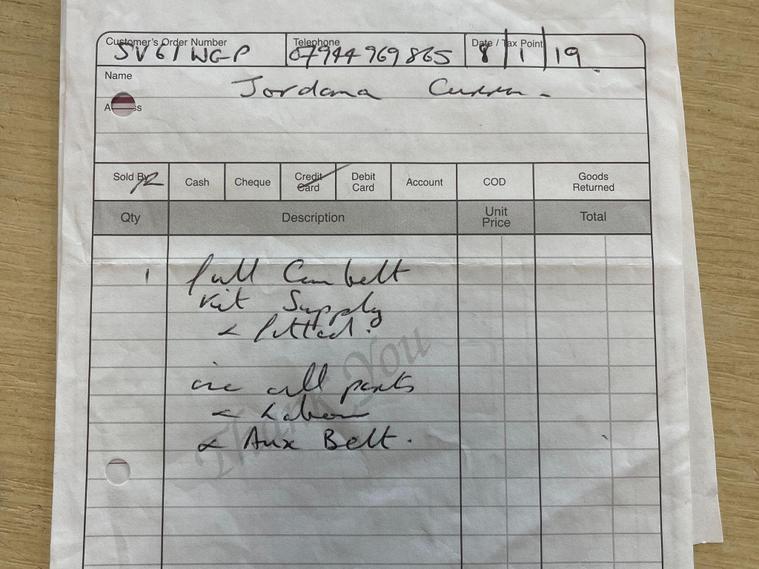 Customer's Order Number Telephone Date / Tax Point
SV61 WGP 07944 969865 8 | 1 | 19
Name Jordana Curran
Sold By Cash Cheque Credit Card Debit Card Account COD Goods Returned
Qty Description Unit Price Total
1 full Cambelt
Kit Supply
& fitted.
inc all parts
& Labour
& Aux Belt.
Thank You